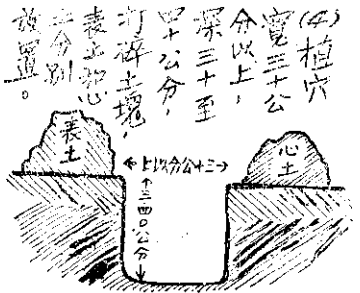 (4)植穴
寬三十公
分以上，
深三十至
四十公分，
打碎土塊，
表土心
土分別
放置。
心土
表土
三十公分以上
三四〇公分